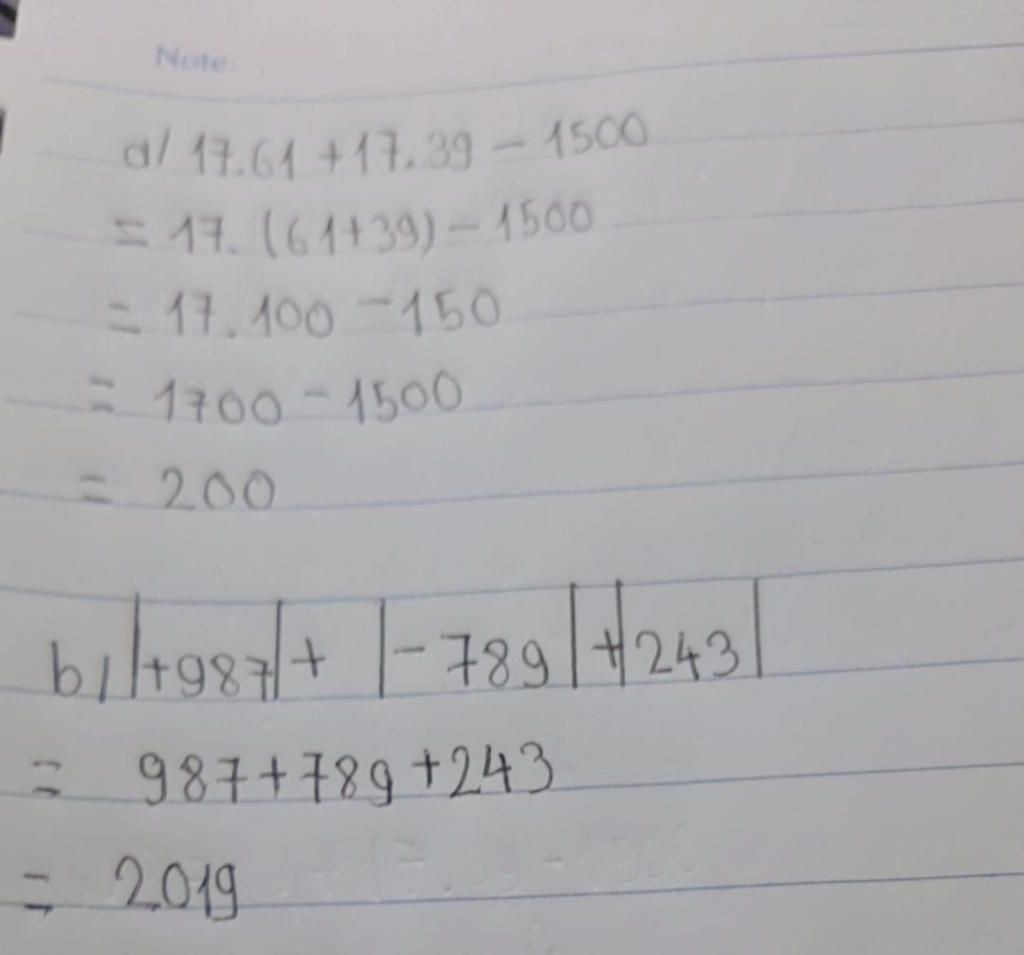 Note
a/ 17.61 + 17.39 - 1500
= 17. (61+39) - 1500
= 17.100 - 150
= 1700 - 1500
= 200
b/ |+987| + |-789| + |243|
= 987+789+243
= 2019